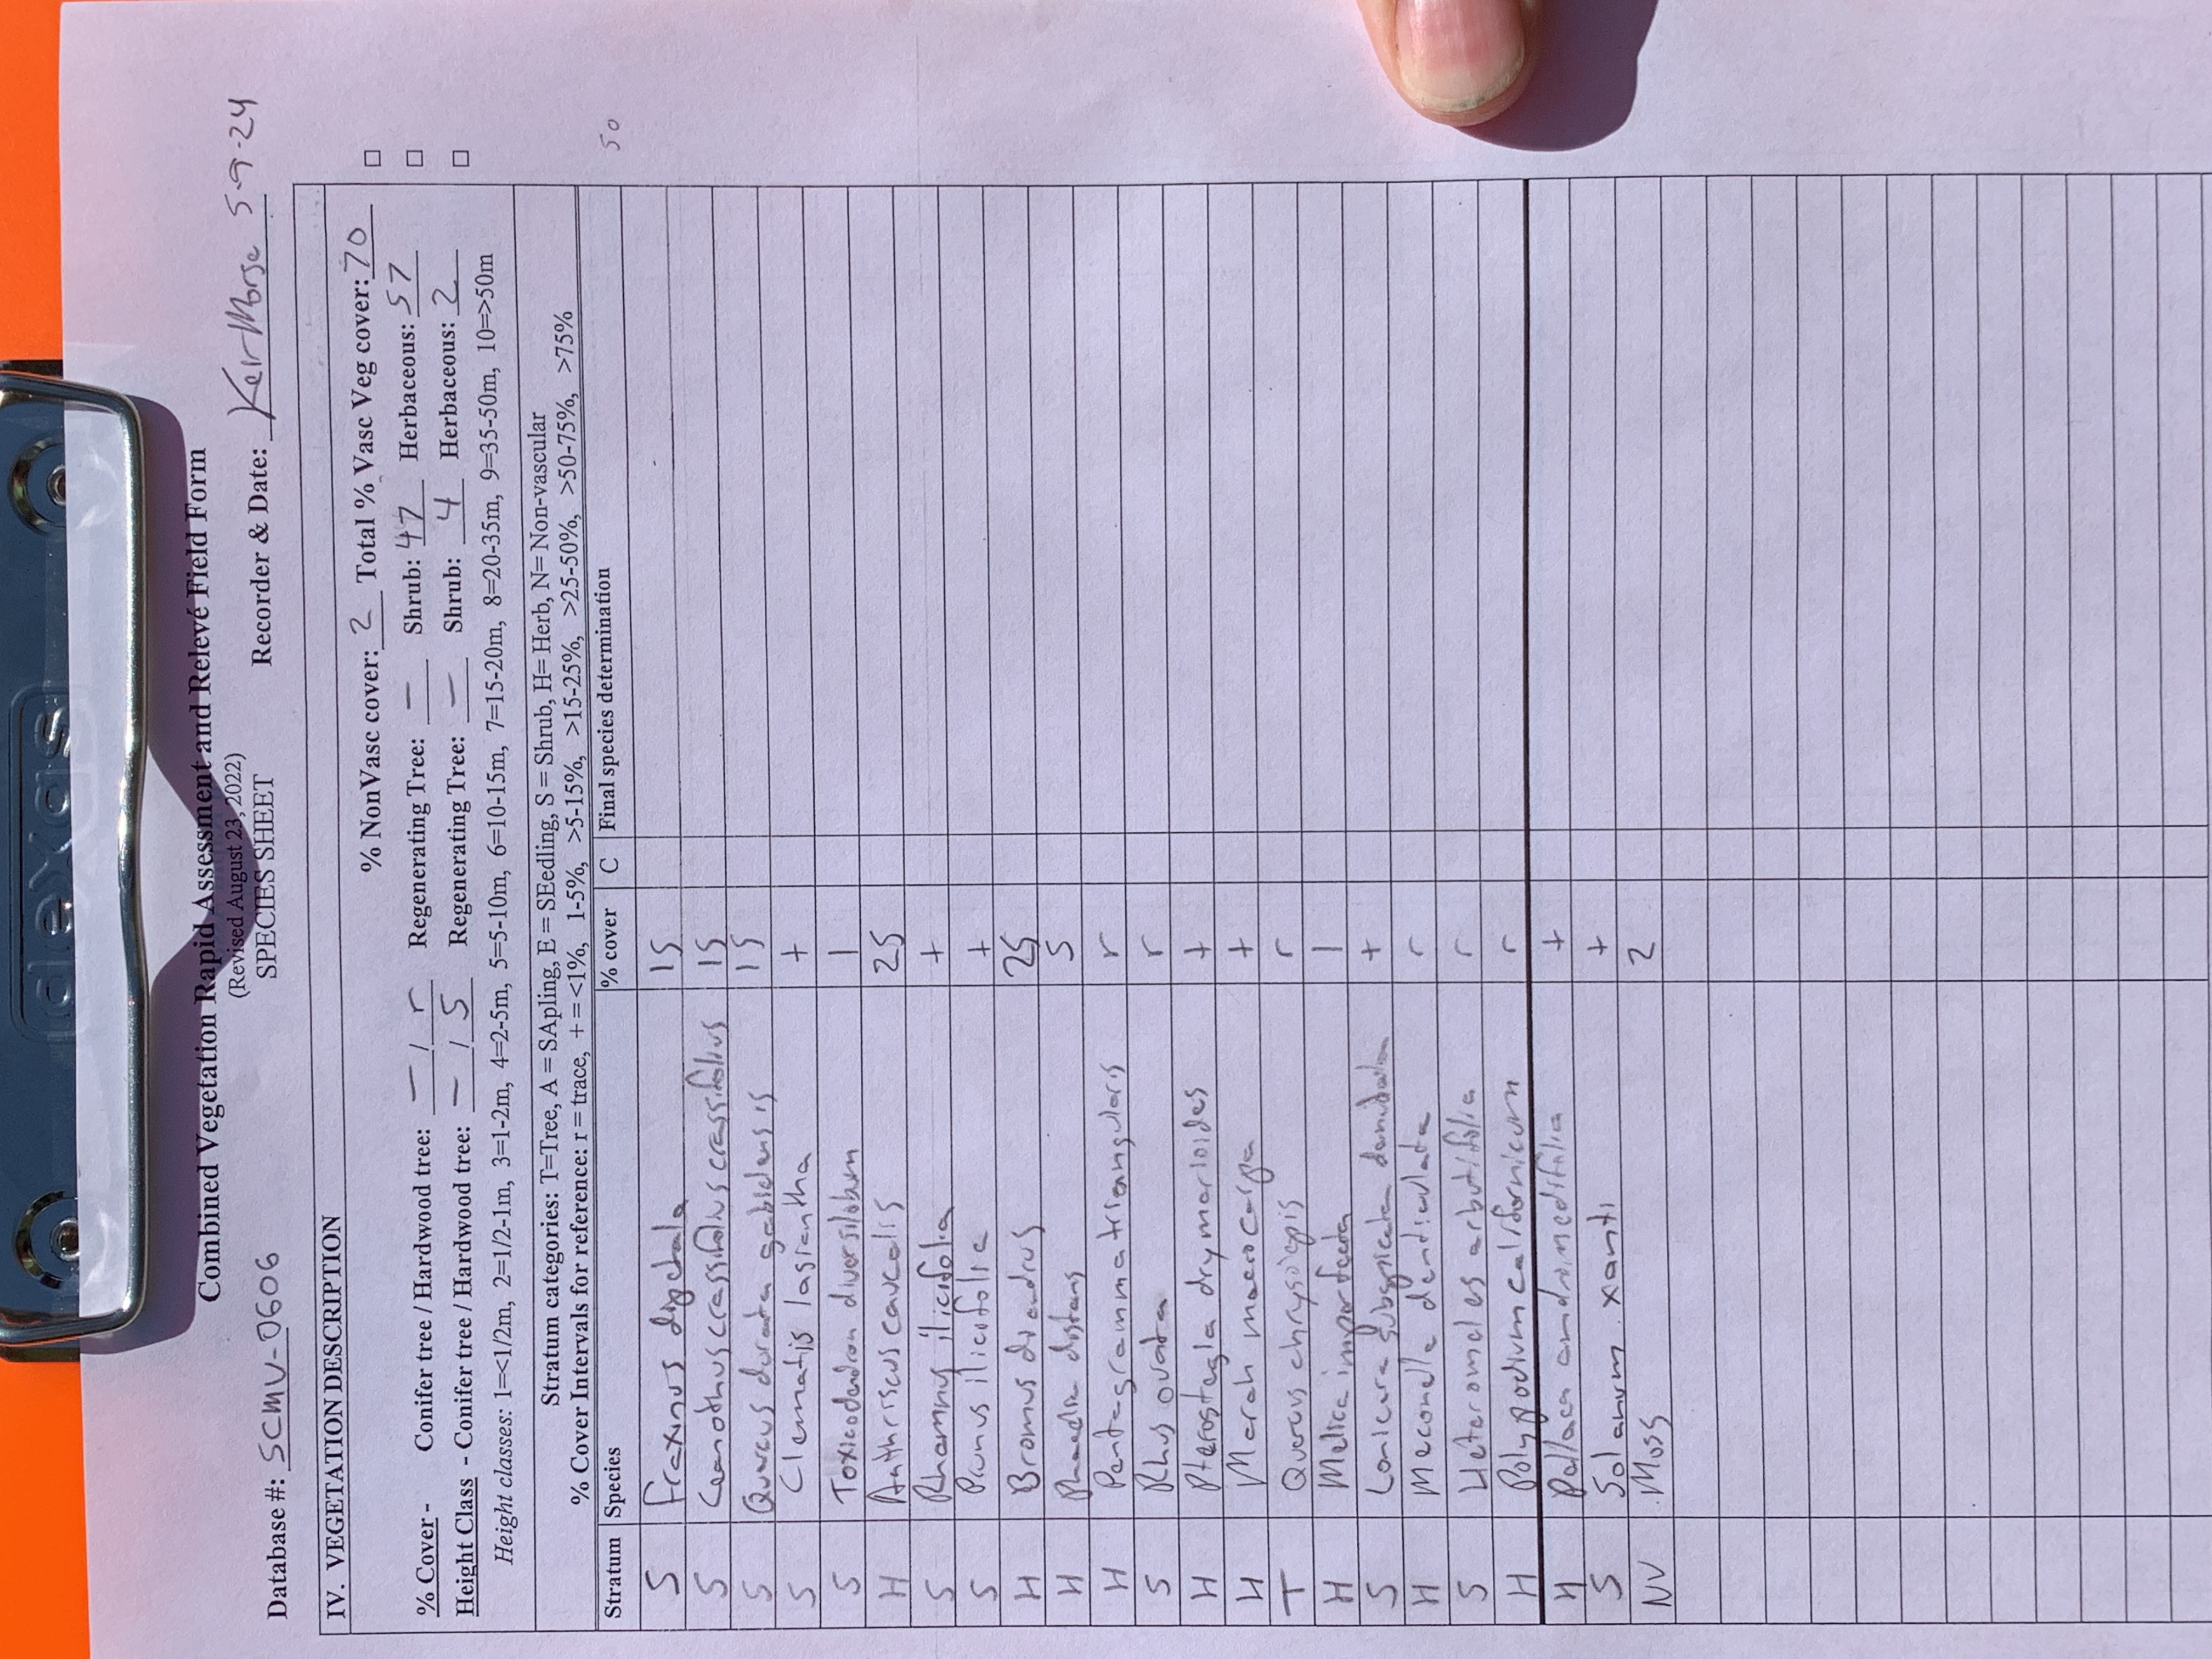 dexas
Combined Vegetation Rapid Assessment and Relevé Field Form
(Revised August 23, 2022)
SPECIES SHEET
Database #: SCMV-0606 Recorder & Date: Keir Morse 5-9-24
IV. VEGETATION DESCRIPTION
% NonVasc cover: 2 Total % Vasc Veg cover: 70 □
% Cover - Conifer tree / Hardwood tree: — / r Regenerating Tree: — Shrub: 47 Herbaceous: 57 □
Height Class - Conifer tree / Hardwood tree: — / 5 Regenerating Tree: — Shrub: 4 Herbaceous: 2 □
Height classes: 1=<1/2m, 2=1/2-1m, 3=1-2m, 4=2-5m, 5=5-10m, 6=10-15m, 7=15-20m, 8=20-35m, 9=35-50m, 10=>50m
Stratum categories: T=Tree, A = SApling, E = SEedling, S = Shrub, H= Herb, N= Non-vascular
% Cover Intervals for reference: r = trace, + = <1%, 1-5%, >5-15%, >15-25%, >25-50%, >50-75%, >75%
Stratum Species % cover C Final species determination 50
S Fraxinus dipetala 15
S Ceanothus crassifolius crassifolius 15
S Quercus durata gabrielensis 15
S Clematis lasiantha +
S Toxicodendron diversilobum 1
H Anthriscus caucalis 25
S Rhamnus ilicifolia +
S Prunus ilicifolia +
H Bromus diandrus 25
H Phacelia distans 5
H Pentagramma triangularis r
S Rhus ovata r
H Pterostegia drymarioides +
H Marah macrocarpa +
T Quercus chrysolepis r
H Melica imperfecta 1
S Lonicera subspicata denudata +
H Meconella denticulata r
S Heteromeles arbutifolia r
H Polypodium californicum r
H Pellaea andromedifolia +
S Solanum xanti +
NV Moss 2